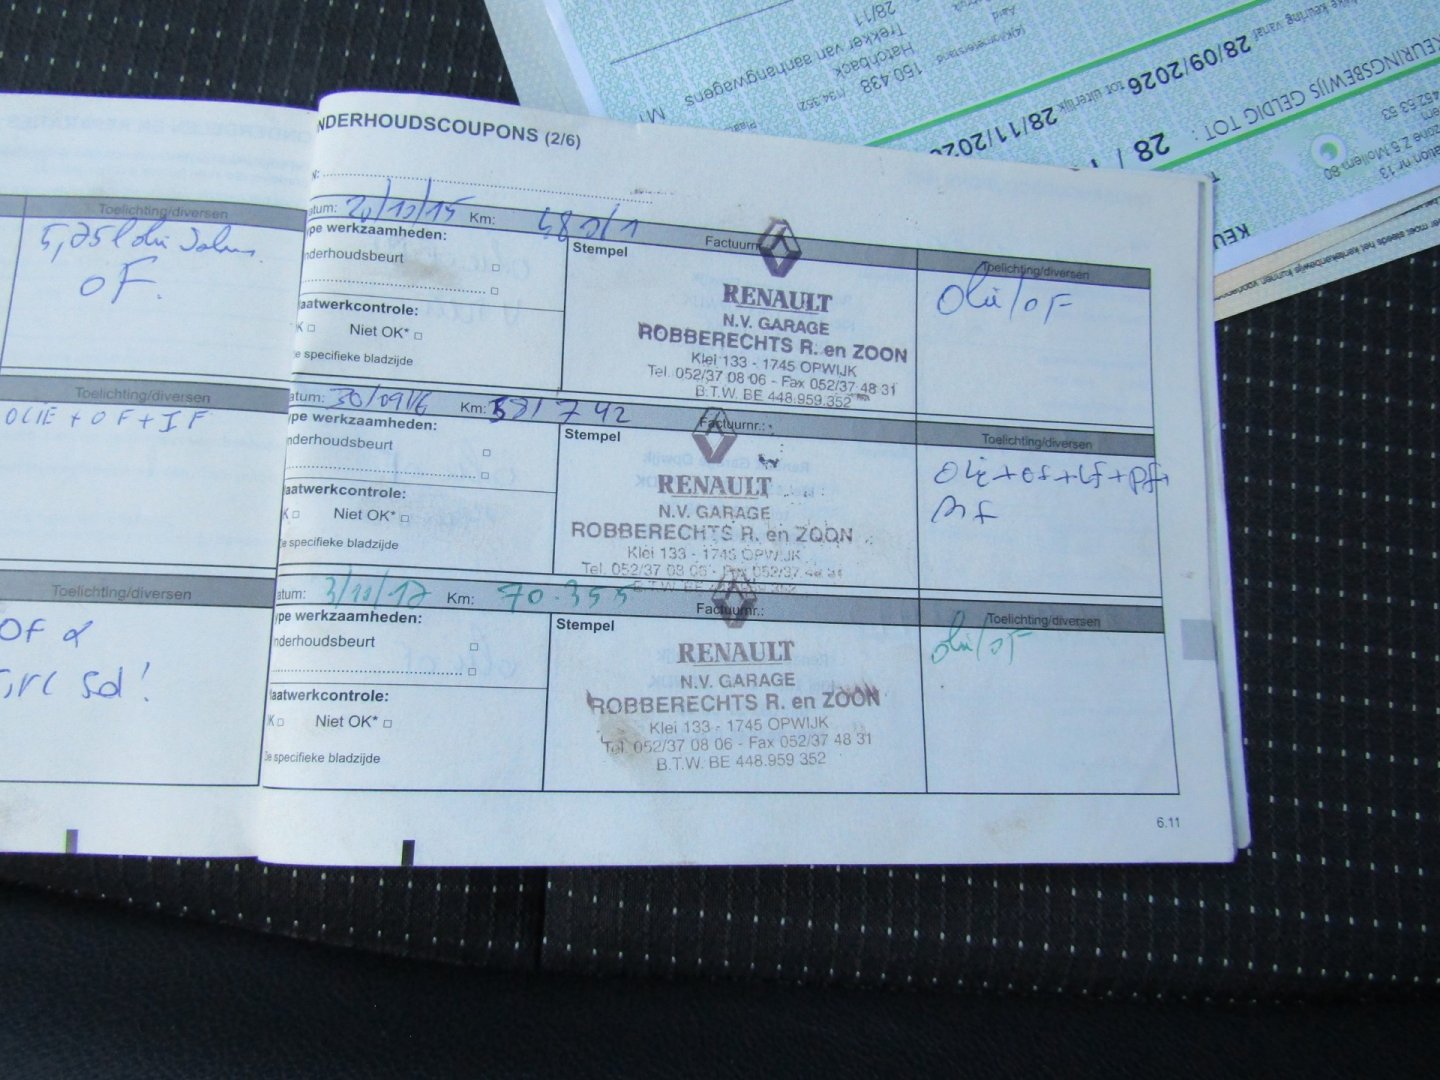 Toelichting/diversen
OF.
Toelichting/diversen
OLIE + OF + IF
Toelichting/diversen
OF
NDERHOUDSCOUPONS (2/6)
N:
atum: 20/10/15 Km: Factuurnr.:
ype werkzaamheden:
Stempel
Toelichting/diversen
nderhoudsbeurt
Olie/OF
aatwerkcontrole:
K Niet OK*
e specifieke bladzijde
RENAULT
N.V. GARAGE
ROBBERECHTS R. en ZOON
Klei 133 - 1745 OPWIJK
Tel. 052/37 08 06 - Fax 052/37 48 31
B.T.W. BE 448.959.352
atum: 30/09/16 Km: Factuurnr.:
ype werkzaamheden:
Stempel
Toelichting/diversen
nderhoudsbeurt
Olie+of+lf+pf+
aatwerkcontrole:
K Niet OK*
e specifieke bladzijde
RENAULT
N.V. GARAGE
ROBBERECHTS R. en ZOON
Klei 133 - 1745 OPWIJK
Tel. 052/37 08 06 - Fax 052/37 48 31
B.T.W. BE 448.959 352
atum: 3/10/17 Km: 70.355 Factuurnr.:
ype werkzaamheden:
Stempel
Toelichting/diversen
nderhoudsbeurt
olie/OF
aatwerkcontrole:
K Niet OK*
e specifieke bladzijde
RENAULT
N.V. GARAGE
ROBBERECHTS R. en ZOON
Klei 133 - 1745 OPWIJK
Tel. 052/37 08 06 - Fax 052/37 48 31
B.T.W. BE 448.959 352
6.11
KEURINGSBEWIJS GELDIG TOT :
28/09/2026 tot uiterlijk 28/11/202
160.438 (134.352)
Hatchback
Trekker van aanhangwagens
28/11